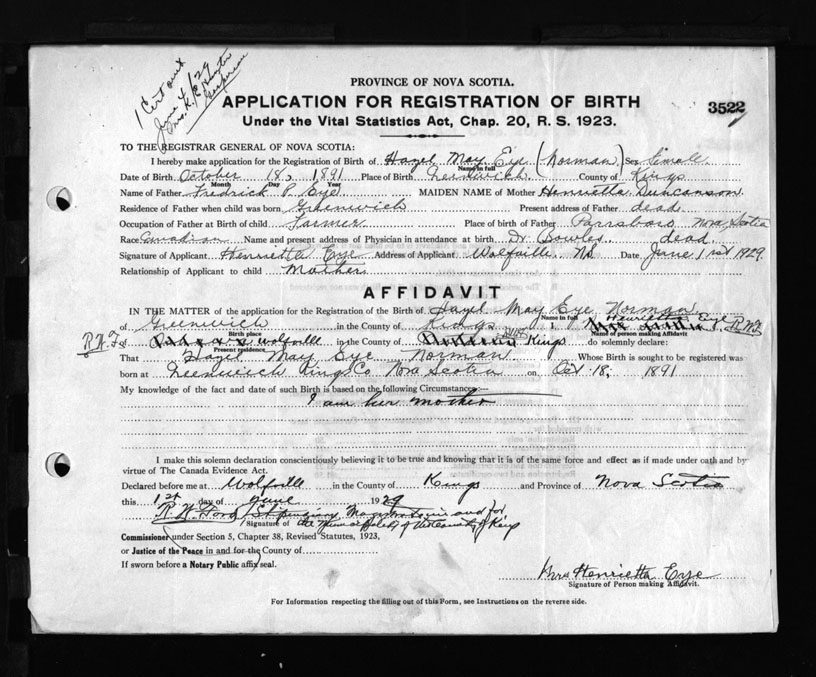 1 Cert out
June 4/29
PROVINCE OF NOVA SCOTIA.
APPLICATION FOR REGISTRATION OF BIRTH
3522
Under the Vital Statistics Act, Chap. 20, R. S. 1923.
TO THE REGISTRAR GENERAL OF NOVA SCOTIA:
I hereby make application for the Registration of Birth of Hazel May Eye (Norman) Sex female
Name in full
Date of Birth October 18, 1891 Place of Birth Greenwich County of Kings
Month Day Year
Name of Father Fredrick P. Eye MAIDEN NAME of Mother Henrietta Duncanson
Residence of Father when child was born Greenwich Present address of Father dead
Occupation of Father at Birth of child Farmer Place of birth of Father Parrsboro Nova Scotia
Race Canadian Name and present address of Physician in attendance at birth Dr Bowles dead
Signature of Applicant Henrietta Eye Address of Applicant Wolfville NS Date June 1st 1929.
Relationship of Applicant to child Mother
AFFIDAVIT
IN THE MATTER of the application for the Registration of the Birth of Hazel May Eye Norman
Name in full
of Greenwich in the County of Kings I, Henrietta Eye R.W.F.
Birth place Name of person making Affidavit
R.W.F. of Wolfville in the County of Kings do solemnly declare:
Present residence
That Hazel May Eye Norman Whose Birth is sought to be registered was
born at Greenwich Kings Co Nova Scotia on Oct 18, 1891
My knowledge of the fact and date of such Birth is based on the following Circumstances:—
I am her mother
I make this solemn declaration conscientiously believing it to be true and knowing that it is of the same force and effect as if made under oath and by
virtue of The Canada Evidence Act.
Declared before me at Wolfville in the County of Kings and Province of Nova Scotia
this 1st day of June 1929
R W Ford Stipendiary Magistrate in and for
Signature of the Municipality of Kings
Commissioner under Section 5, Chapter 38, Revised Statutes, 1923,
or Justice of the Peace in and for the County of
If sworn before a Notary Public affix seal.
Mrs Henrietta Eye
Signature of Person making Affidavit.
For Information respecting the filling out of this Form, see Instructions on the reverse side.